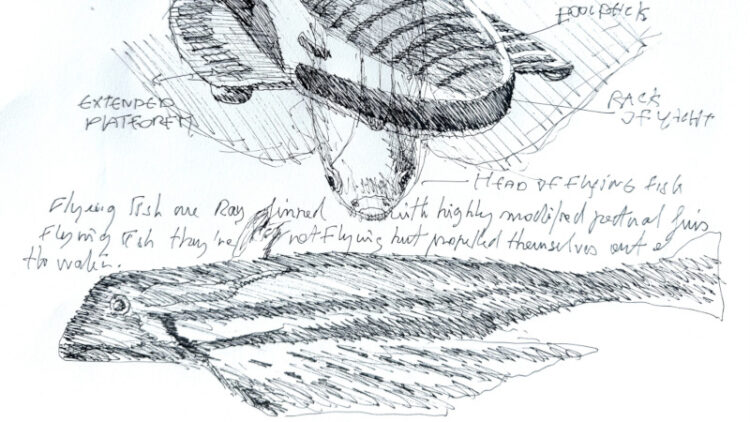 POOLDECK
EXTENDED
PLATFORM
BACK
OF YACHT
HEAD OF FLYING FISH
Flying Fish are Ray finned with highly modified pectoral fins
Flying Fish they're not flying but propelled themselves out of
the water.